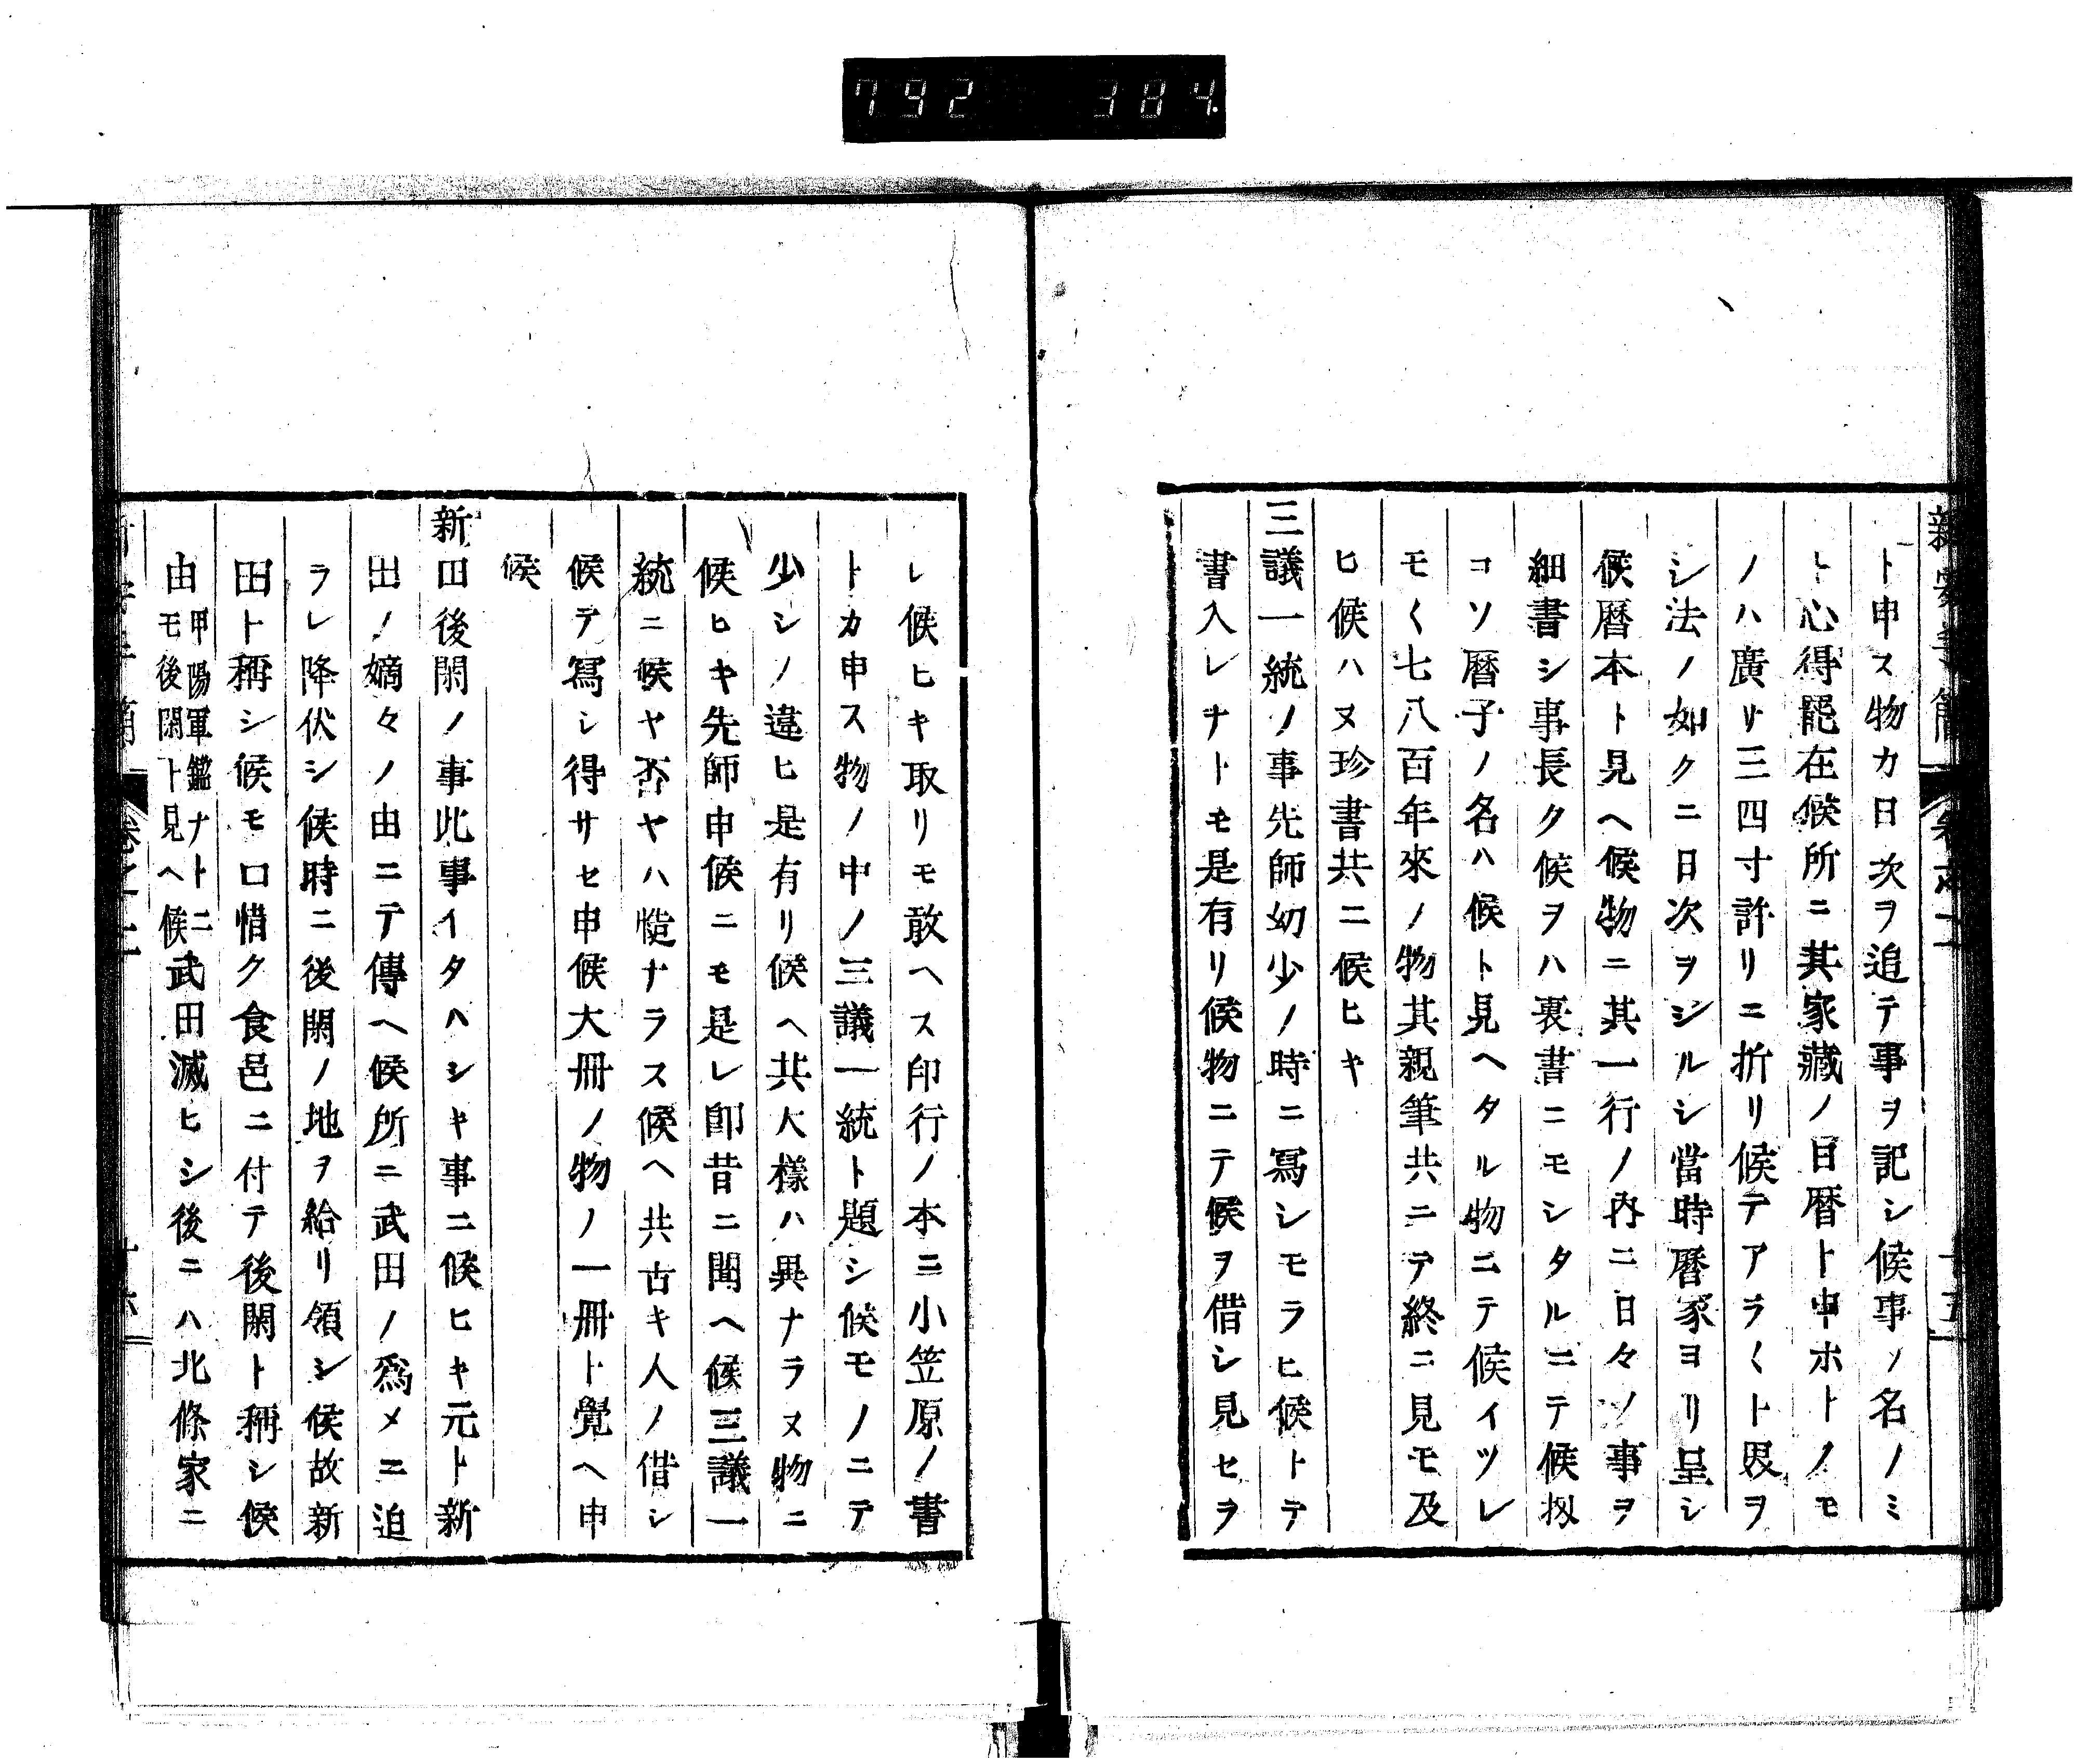 792 384
新安手簡 卷之二 十五
ト申ス物カ日次ヲ追テ事ヲ記シ候事ノ名ノミ
ト心得罷在候所ニ其家藏ノ日暦ト申ホトノモ
ノハ廣サ三四寸許リニ折リ候テアラ〱ト界ヲ
シ法ノ如クニ日次ヲシルシ當時暦家ヨリ呈シ
候暦本ト見ヘ候物ニ其一行ノ內ニ日々ノ事ヲ
細書シ事長ク候ヲハ裏書ニモシタルニテ候扨
コソ暦子ノ名ハ候ト見ヘタル物ニテ候イツレ
モ〱七八百年來ノ物其親筆共ニテ終ニ見モ及
ヒ候ハヌ珍書共ニ候ヒキ
三議一統ノ事先師幼少ノ時ニ寫シモラヒ候トテ
書入レナトモ是有リ候物ニテ候ヲ借シ見セラ
レ候ヒキ取リモ敢ヘス印行ノ本ニ小笠原ノ書
トカ申ス物ノ中ノ三議一統ト題シ候モノニテ
少シノ違ヒ是有リ候ヘ共大樣ハ異ナラヌ物ニ
候ヒキ先師申候ニモ是レ卽昔ニ聞ヘ候三議一
統ニ候ヤ否ヤハ慥ナラス候ヘ共古キ人ノ借シ
候テ寫シ得サセ申候大冊ノ物ノ一冊ト覺ヘ申
候
新田後閑ノ事此事イタハシキ事ニ候ヒキ元ト新
田ノ嫡々ノ由ニテ傳ヘ候所ニ武田ノ爲メニ迫
ラレ降伏シ候時ニ後閑ノ地ヲ給リ領シ候故新
田ト稱シ候モ口惜ク食邑ニ付テ後閑ト稱シ候
由甲陽軍鑑ナトニモ後閑ト見ヘ候武田滅ヒシ後ニハ北條家ニ
卷之二